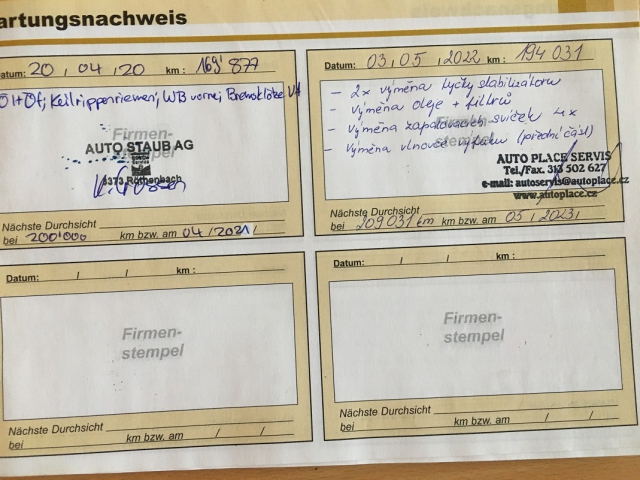 artungsnachweis
atum: 20 , 04 , 20 km : 169'877
Öl+Öf, Keilrippenriemen, WB vorne, Bremsklötze
Firmen-
stempel
AUTO STAUB AG
6373 Rothenbach
Nächste Durchsicht
bei 200'000 km bzw. am 04 / 2021 /
Datum: 03 , 05 , 2022 km : 194 031
- 2x výměna tyčky stabilizátoru
- výměna oleje + filtrů
- výměna zapalovacích svíček 4x
- výměna vlnovce výfuku (přední část)
Firmen-
stempel
AUTO PLACE SERVIS
Tel./Fax. 313 502 627
e-mail: autoservis@autoplace.cz
www.autoplace.cz
Nächste Durchsicht
bei 209 031 km km bzw. am 05 / 2023 /
Datum: / / km :
Firmen-
stempel
Nächste Durchsicht
bei km bzw. am / /
Datum: / / km :
Firmen-
stempel
Nächste Durchsicht
bei km bzw. am / /